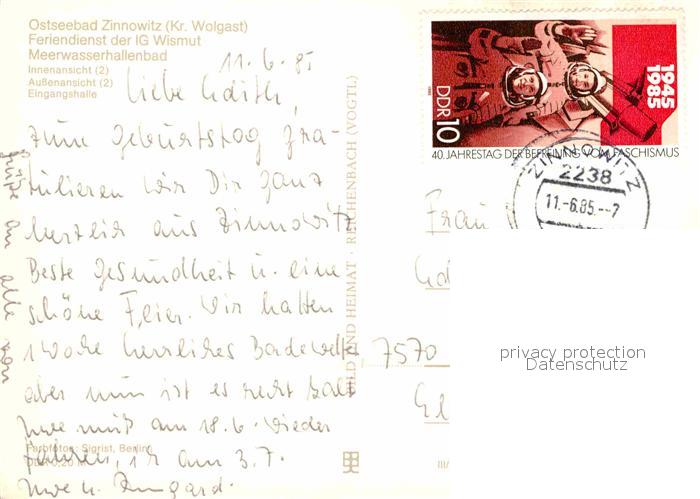 Ostseebad Zinnowitz (Kr. Wolgast)
Feriendienst der IG Wismut
Meerwasserhallenbad
Innenansicht (2)
Außenansicht (2)
Eingangshalle
11.6.85
Liebe Edith,
zum Geburtstag gra-
tulieren wir Dir ganz
herzlich aus Zinnowitz
Beste Gesundheit u. eine
schöne Feier. Wir hatten
1 Woche herrliches Badewetter,
aber nun ist es recht kalt
Uwe muß am 18.6. wieder
fahren, ich am 3.7.
Uwe u. Irmgard.
Grüße an alle von
Farbfotos: Sigrist, Berlin
0,20 M
BILD UND HEIMAT · REICHENBACH (VOGTL)
III/
DDR 10
1945
1985
40. JAHRESTAG DER BEFREIUNG VOM FASCHISMUS
ZINNOWITZ
2238
11.-6.85.--7
Frau
Ed
7570
privacy protection
Datenschutz